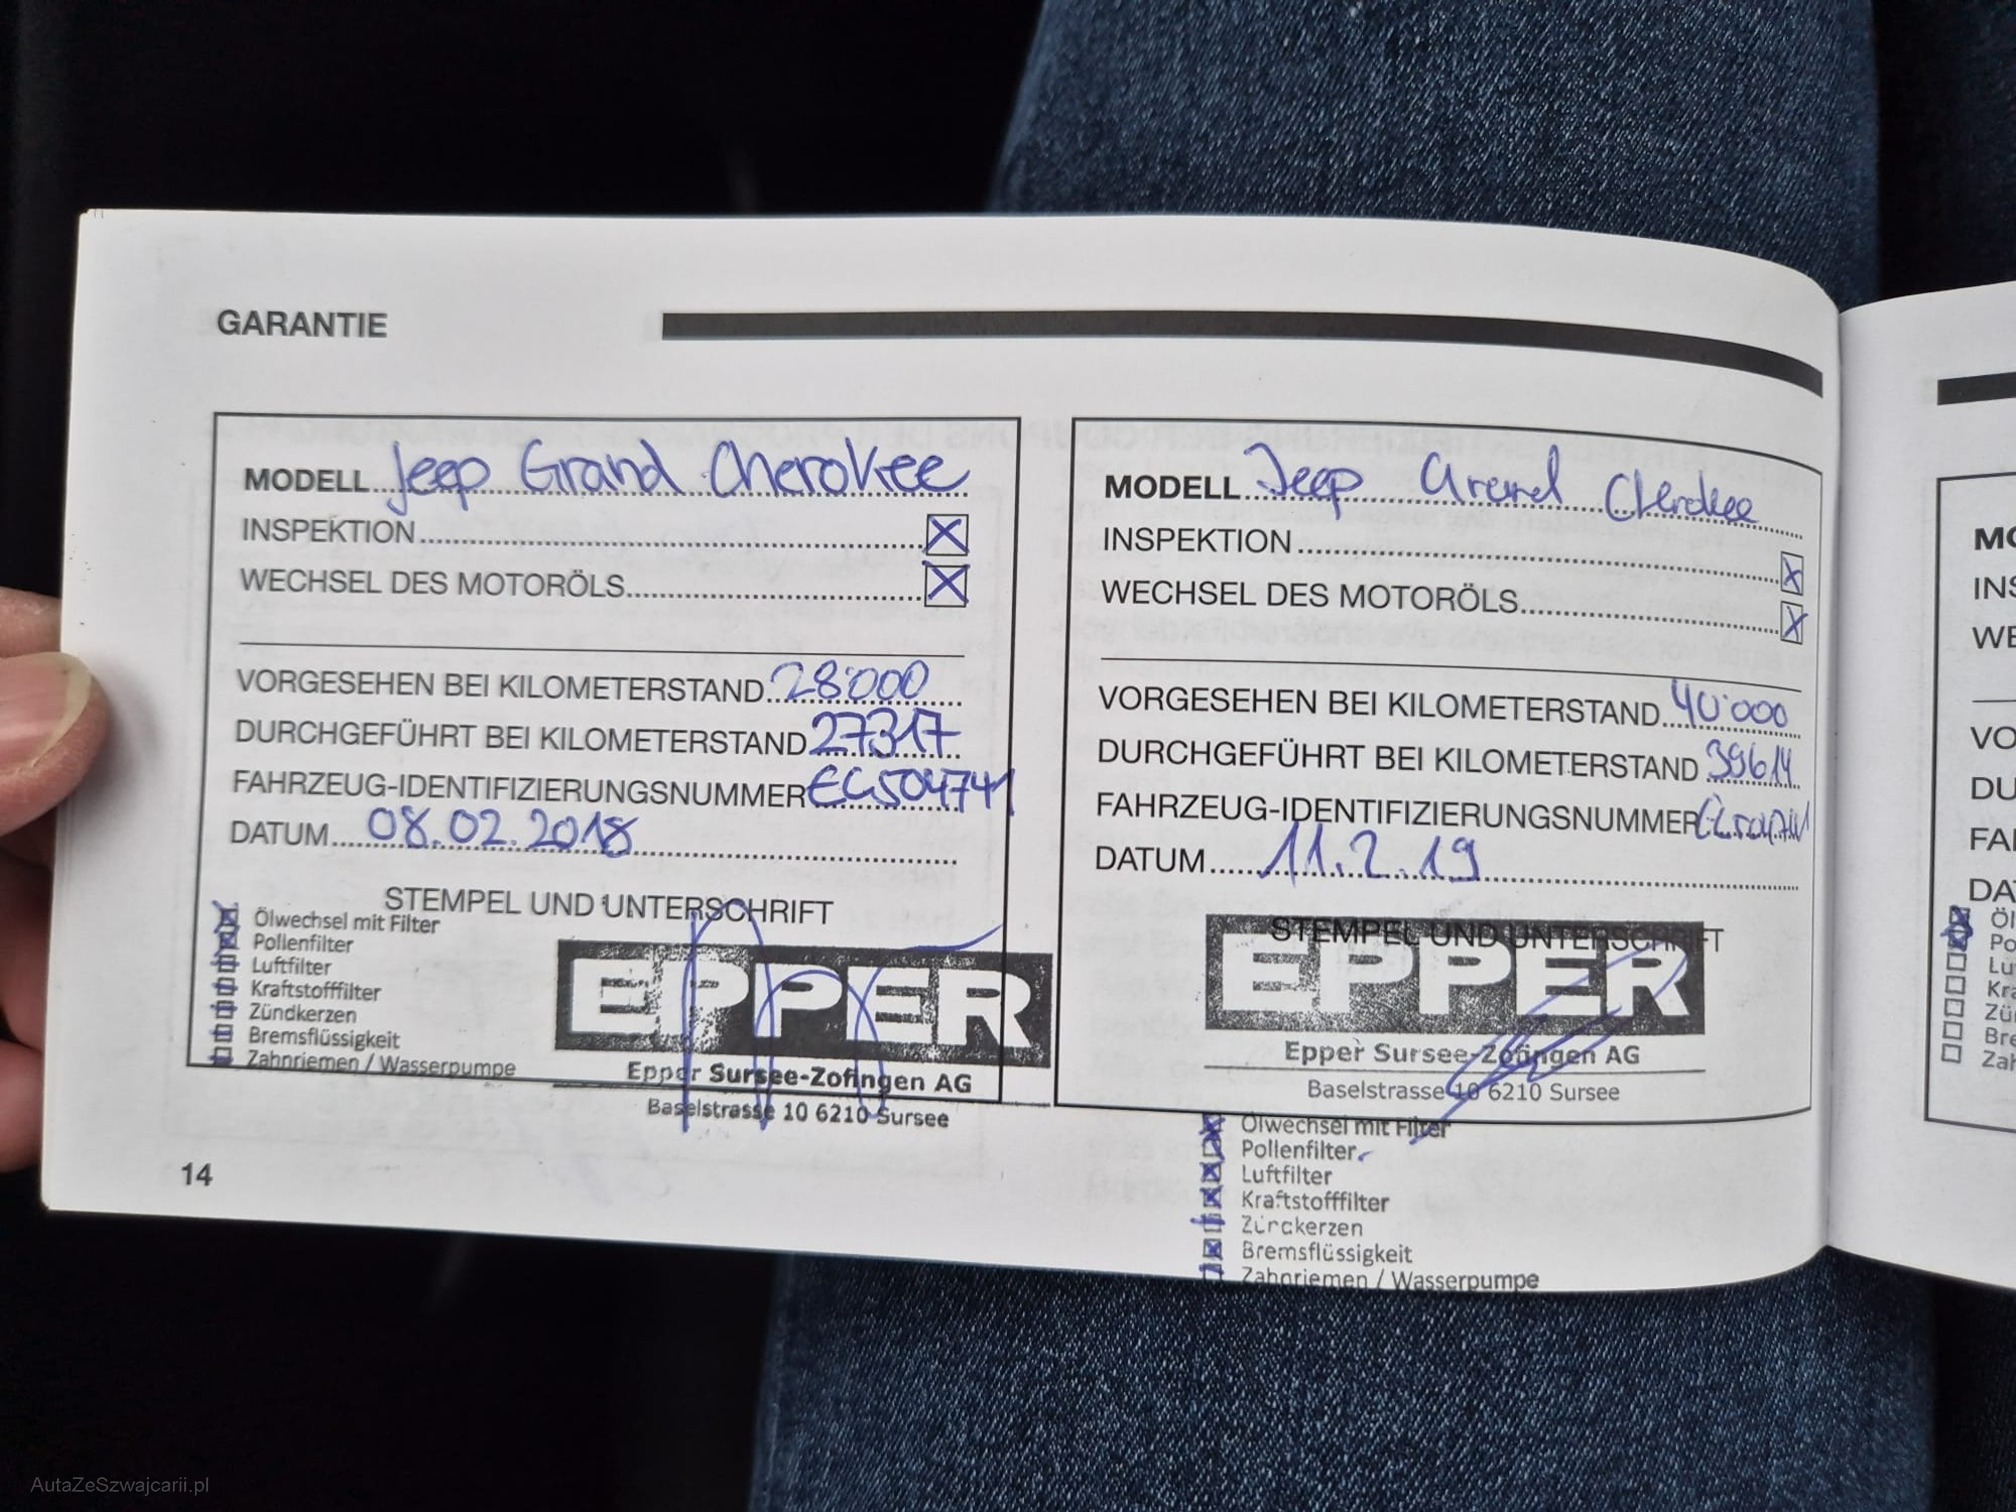 GARANTIE
MODELL Jeep Grand Cherokee
INSPEKTION
WECHSEL DES MOTORÖLS
VORGESEHEN BEI KILOMETERSTAND 28'000
DURCHGEFÜHRT BEI KILOMETERSTAND 27317
FAHRZEUG-IDENTIFIZIERUNGSNUMMER EC504741
DATUM 08.02.2018
STEMPEL UND UNTERSCHRIFT
Ölwechsel mit Filter
Pollenfilter
Luftfilter
Kraftstofffilter
Zündkerzen
Bremsflüssigkeit
Zahnriemen / Wasserpumpe
EPPER
Epper Sursee-Zofingen AG
Baselstrasse 10 6210 Sursee
14
MODELL Jeep Grand Cherokee
INSPEKTION
WECHSEL DES MOTORÖLS
VORGESEHEN BEI KILOMETERSTAND 40'000
DURCHGEFÜHRT BEI KILOMETERSTAND 39614
FAHRZEUG-IDENTIFIZIERUNGSNUMMER
DATUM 11.2.19
STEMPEL UND UNTERSCHRIFT
EPPER
Epper Sursee-Zofingen AG
Baselstrasse 10 6210 Sursee
Ölwechsel mit Filter
Pollenfilter
Luftfilter
Kraftstofffilter
Zündkerzen
Bremsflüssigkeit
Zahnriemen / Wasserpumpe
AutaZeSzwajcarii.pl